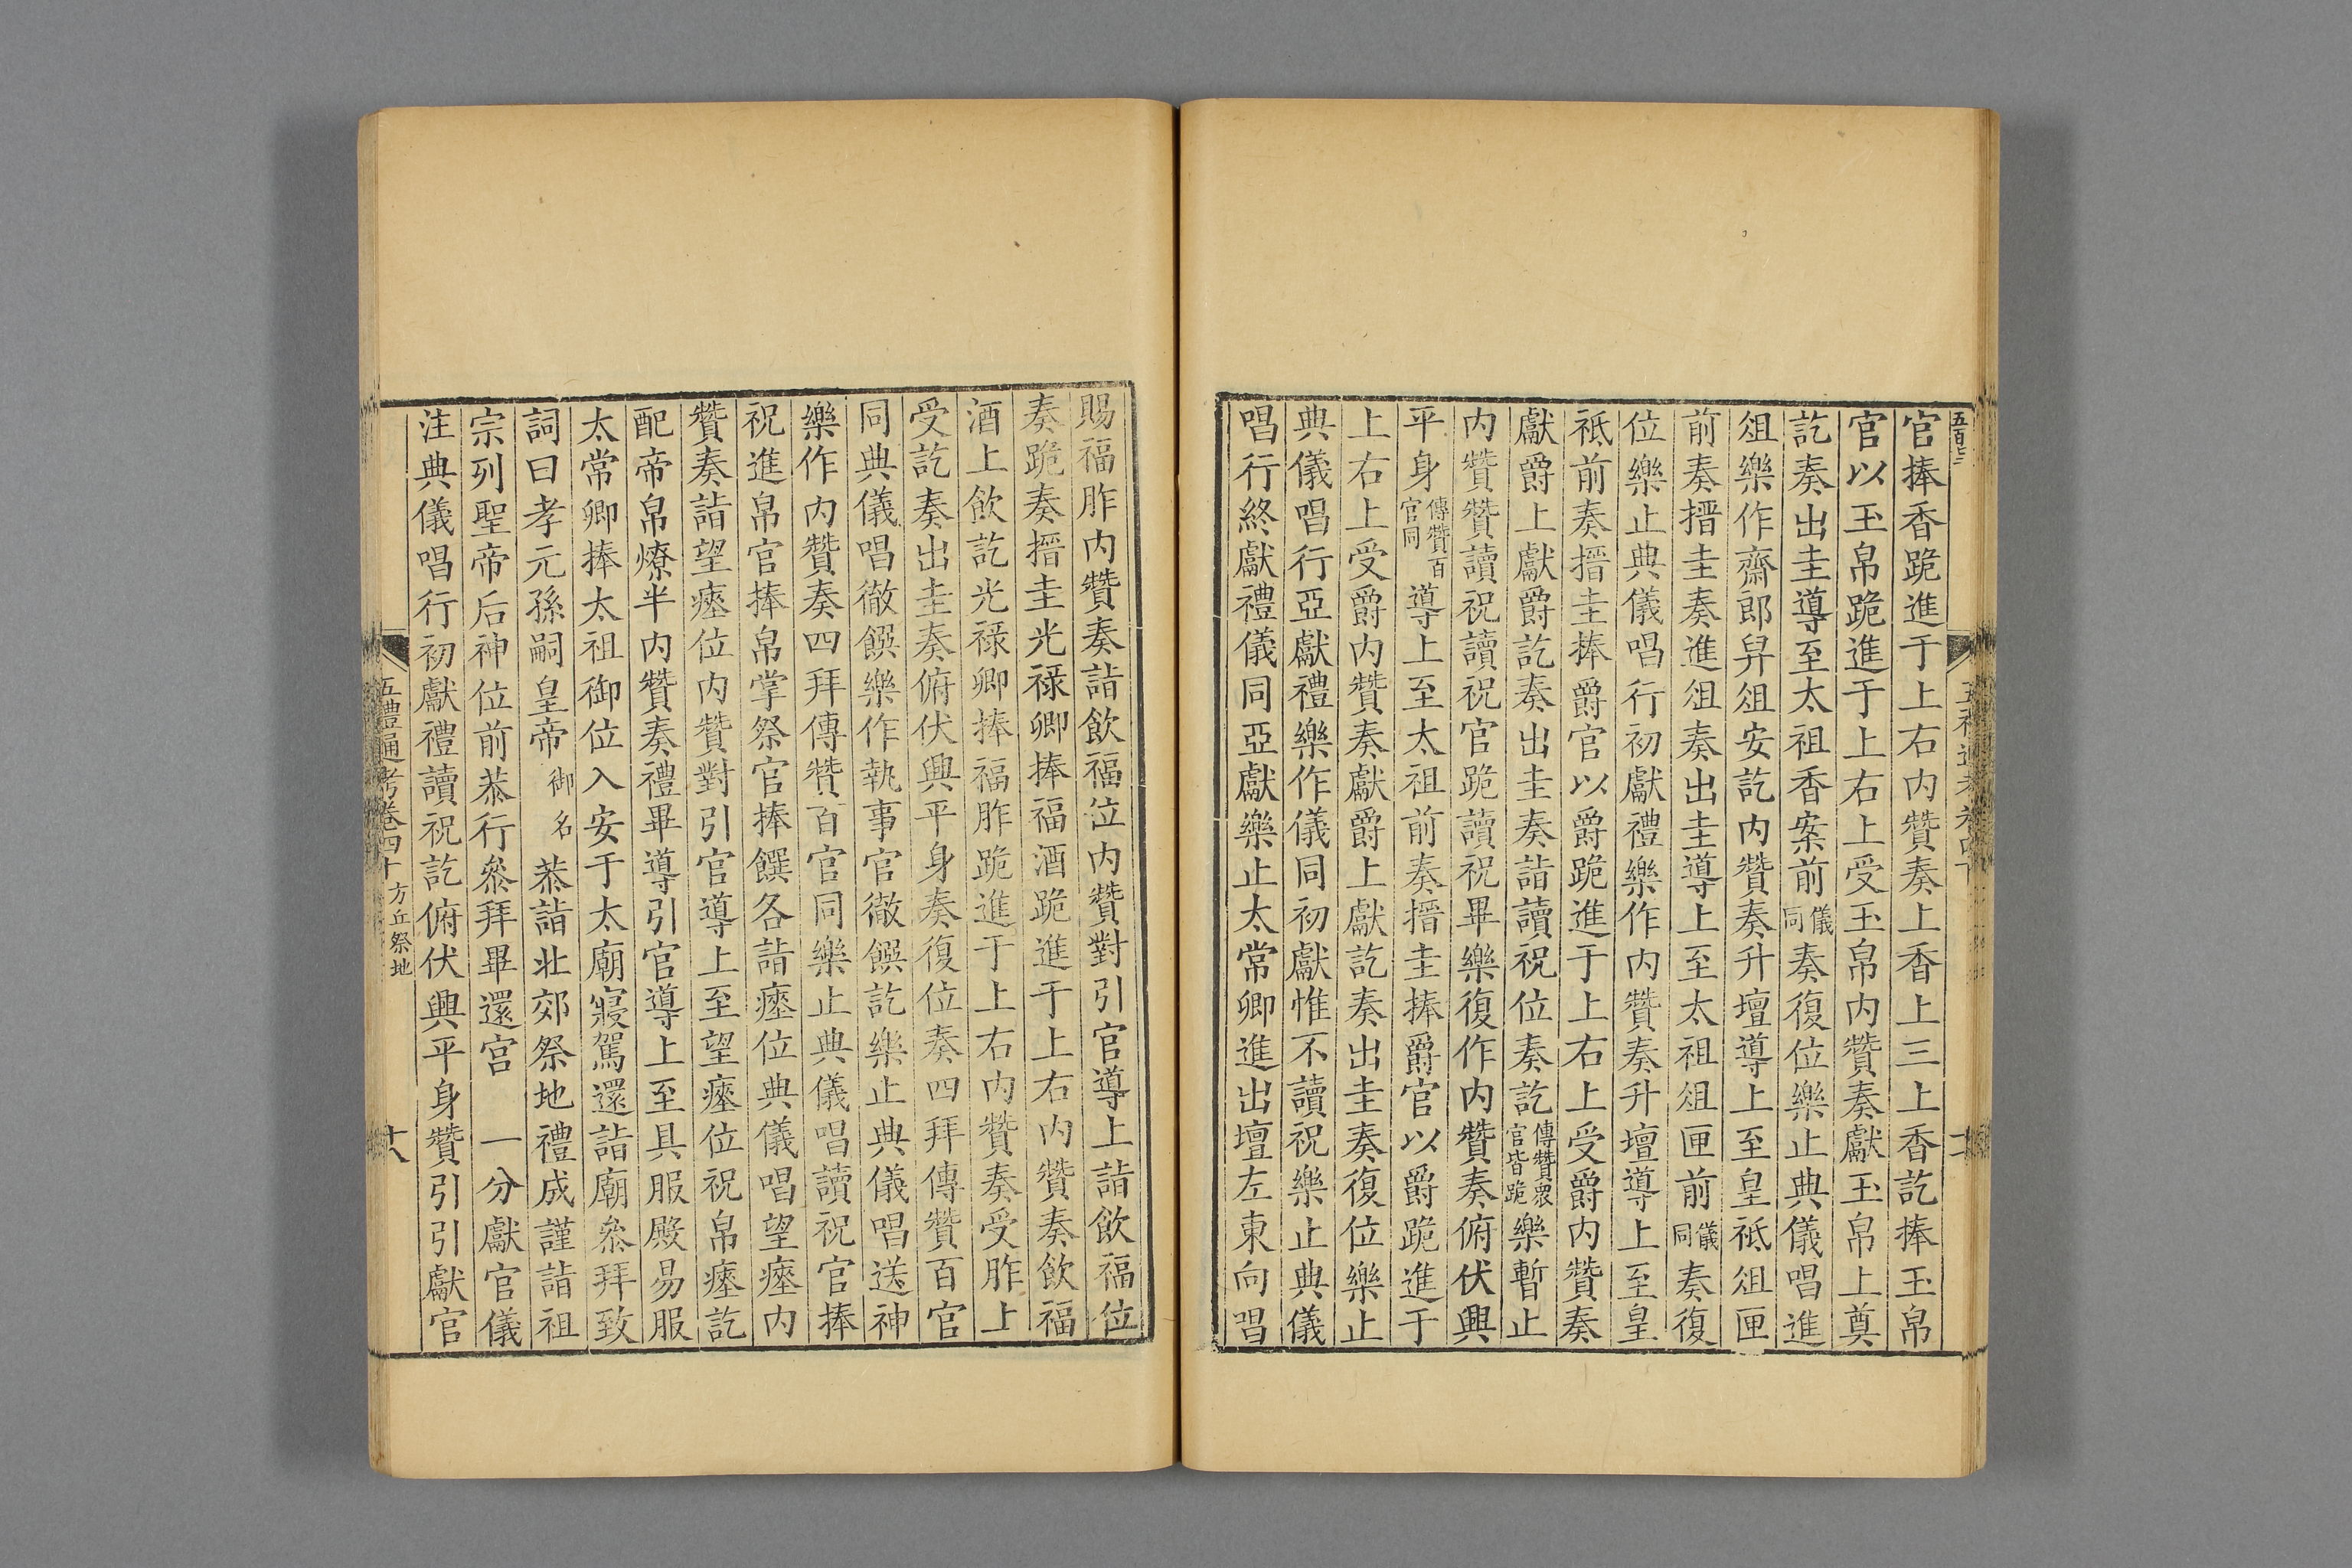 官捧香跪進于上右内贊奏上香上三上香訖捧玉帛
官以玉帛跪進于上右上受玉帛内贊奏獻玉帛上奠
訖奏出圭導至太祖香案前儀同奏復位樂止典儀唱進
俎樂作齋郎舁俎安訖内贊奏升壇導上至皇祇俎匣
前奏搢圭奏進俎奏出圭導上至太祖俎匣前儀同奏復
位樂止典儀唱行初獻禮樂作内贊奏升壇導上至皇
祇前奏搢圭捧爵官以爵跪進于上右上受爵内贊奏
獻爵上獻爵訖奏出圭奏詣讀祝位奏訖傳贊衆官皆跪樂暫止
内贊贊讀祝讀祝官跪讀祝畢樂復作内贊奏俯伏興
平身傳贊百官同導上至太祖前奏搢圭捧爵官以爵跪進于
上右上受爵内贊奏獻爵上獻訖奏出圭奏復位樂止
典儀唱行亞獻禮樂作儀同初獻惟不讀祝樂止典儀
唱行終獻禮儀同亞獻樂止太常卿進出壇左東向唱
賜福胙内贊奏詣飲福位内贊對引官導上詣飲福位
奏跪奏搢圭光禄卿捧福酒跪進于上右内贊奏飲福
酒上飲訖光禄卿捧福胙跪進于上右内贊奏受胙上
受訖奏出圭奏俯伏興平身奏復位奏四拜傳贊百官
同典儀唱徹饌樂作執事官徹饌訖樂止典儀唱送神
樂作内贊奏四拜傳贊百官同樂止典儀唱讀祝官捧
祝進帛官捧帛掌祭官捧饌各詣瘞位典儀唱望瘞内
贊奏詣望瘞位内贊對引官導上至望瘞位祝帛瘞訖
配帝帛燎半内贊奏禮畢導引官導上至具服殿易服
太常卿捧太祖御位入安于太廟寢駕還詣廟叅拜致
詞曰孝元孫嗣皇帝御名恭詣北郊祭地禮成謹詣祖
宗列聖帝后神位前恭行叅拜畢還宫　一分獻官儀
注典儀唱行初獻禮讀祝訖俯伏興平身贊引引獻官
五禮通考卷四十　方丘祭地　十八